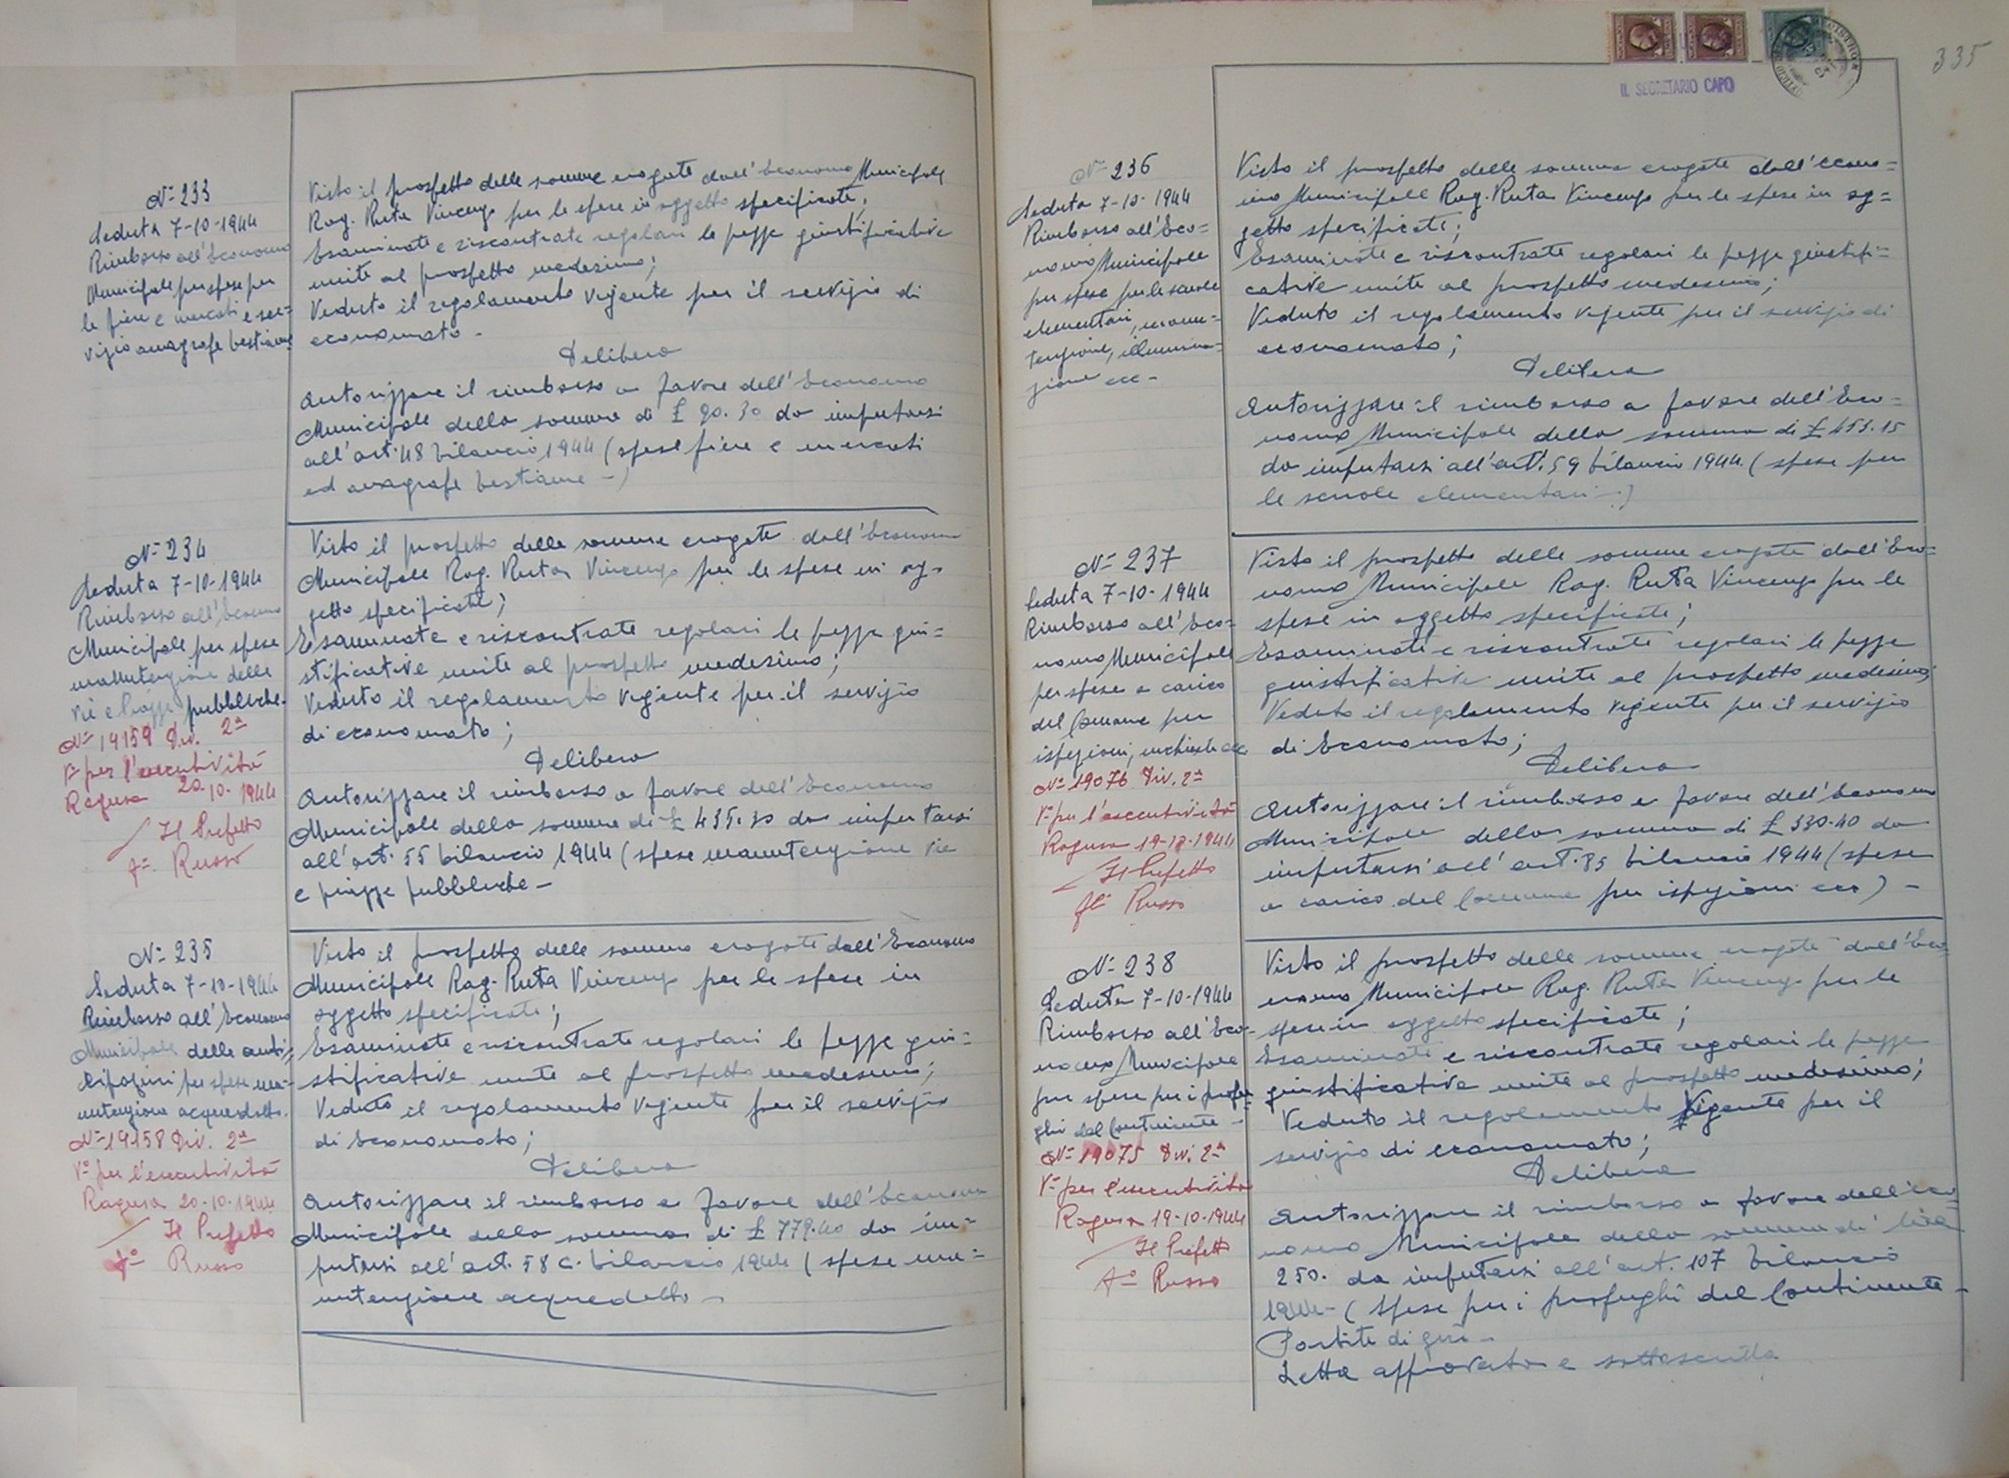 N° 233
Seduta 7-10-1944
Rimborso all'Economo
Municipale per spese per
le fiere e mercati e ser=
vizio anagrafe bestiame
Visto il prospetto delle somme erogate dall'Economo Municipale
Rag. Ruta Vincenzo per le spese in oggetto specificate;
Esaminate e riscontrate regolari le pezze giustificative
unite al prospetto medesimo;
Veduto il regolamento vigente per il servizio di
economato -
Delibera
Autorizzare il rimborso a favore dell'Economo
Municipale della somma di £ 90.30 da imputarsi
all'art. 48 bilancio 1944 (spese fiere e mercati
ed anagrafe bestiame -)
N° 234
Seduta 7-10-1944
Rimborso all'Economo
Municipale per spese
manutenzione delle
vie e piazze pubbliche.
N° 19159 Div. 2ª
V° per l'esecutività
Ragusa 20.10.1944
Il Prefetto
f° Russo
Visto il prospetto delle somme erogate dall'Economo
Municipale Rag. Ruta Vincenzo per le spese in og=
getto specificate;
Esaminate e riscontrate regolari le pezze giu=
stificative unite al prospetto medesimo;
Veduto il regolamento vigente per il servizio
di economato;
Delibera
Autorizzare il rimborso a favore dell'Economo
Municipale della somma di £ 435.30 da imputarsi
all'art. 55 bilancio 1944 (spese manutenzione vie
e piazze pubbliche -
N° 235
Seduta 7-10-1944
Rimborso all'Economo
Municipale delle antici=
pazioni per spese ma=
nutenzione acquedotto.
N° 19158 Div. 2ª
V° per l'esecutività
Ragusa 20-10-1944
Il Prefetto
f° Russo
Visto il prospetto delle somme erogate dall'Economo
Municipale Rag. Ruta Vincenzo per le spese in
oggetto specificate;
Esaminate e riscontrate regolari le pezze giu=
stificative unite al prospetto medesimo;
Veduto il regolamento vigente per il servizio
di Economato;
Delibera
Autorizzare il rimborso a favore dell'Economo
Municipale della somma di £ 779.40 da im=
putarsi all'art. 58 c. bilancio 1944 (spese ma=
nutenzione acquedotto -
335
IL SEGRETARIO CAPO
N° 236
Seduta 7-10-1944
Rimborso all'Eco=
nomo Municipale
per spese per le scuole
elementari, manu=
tenzione, illumina=
zione ecc -
Visto il prospetto delle somme erogate dall'econo=
mo Municipale Rag. Ruta Vincenzo per le spese in og=
getto specificate;
Esaminate e riscontrate regolari le pezze giustifi=
cative unite al prospetto medesimo;
Veduto il regolamento vigente per il servizio di
economato;
Delibera
Autorizzare il rimborso a favore dell'Eco=
nomo Municipale della somma di £ 453.15
da imputarsi all'art. 59 bilancio 1944 (spese per
le scuole elementari -)
N° 237
Seduta 7-10-1944
Rimborso all'Eco=
nomo Municipale
per spese a carico
del Comune per
ispezioni, inchieste ecc
N° 19076 Div. 2ª
V° per l'esecutività
Ragusa 19-10-1944
Il Prefetto
f° Russo
Visto il prospetto delle somme erogate dall'Eco=
nomo Municipale Rag. Ruta Vincenzo per le
spese in oggetto specificate;
Esaminate e riscontrate regolari le pezze
giustificative unite al prospetto medesimo;
Veduto il regolamento vigente per il servizio
di Economato;
Delibera
Autorizzare il rimborso a favore dell'Economo
Municipale della somma di £ 330.40 da
imputarsi all'art. 85 bilancio 1944 (spese
a carico del Comune per ispezioni ecc) -
N° 238
Seduta 7-10-1944
Rimborso all'Eco=
nomo Municipale
per spese per i profu=
ghi dal Continente -
N° 19075 Div. 2ª
V° per l'esecutività
Ragusa 19-10-1944
Il Prefetto
f° Russo
Visto il prospetto delle somme erogate dall'Eco=
nomo Municipale Rag. Ruta Vincenzo per le
spese in oggetto specificate;
Esaminate e riscontrate regolari le pezze
giustificative unite al prospetto medesimo;
Veduto il regolamento vigente per il
servizio di economato;
Delibera
Autorizzare il rimborso a favore dell'Eco=
nomo Municipale della somma di lire
250. da imputarsi all'art. 107 bilancio
1944 - (spese per i profughi dal Continente -
Partite di giro -
Letto approvato e sottoscritto